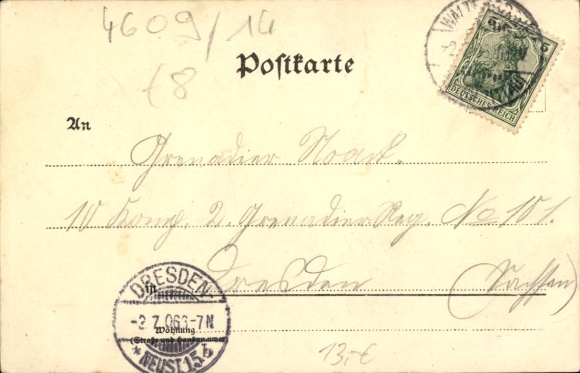 4609/14
(8
Postkarte
DEUTSCHES REICH
An
Grenadier Noack.
10 Komp. 2. Grenadier Reg. No 101.
Dresden (Sachsen)
in
DRESDEN
-2.7.06.6-7N
* NEUST.15. b
Wohnung
(Straße und Hausnummer)
13,-€